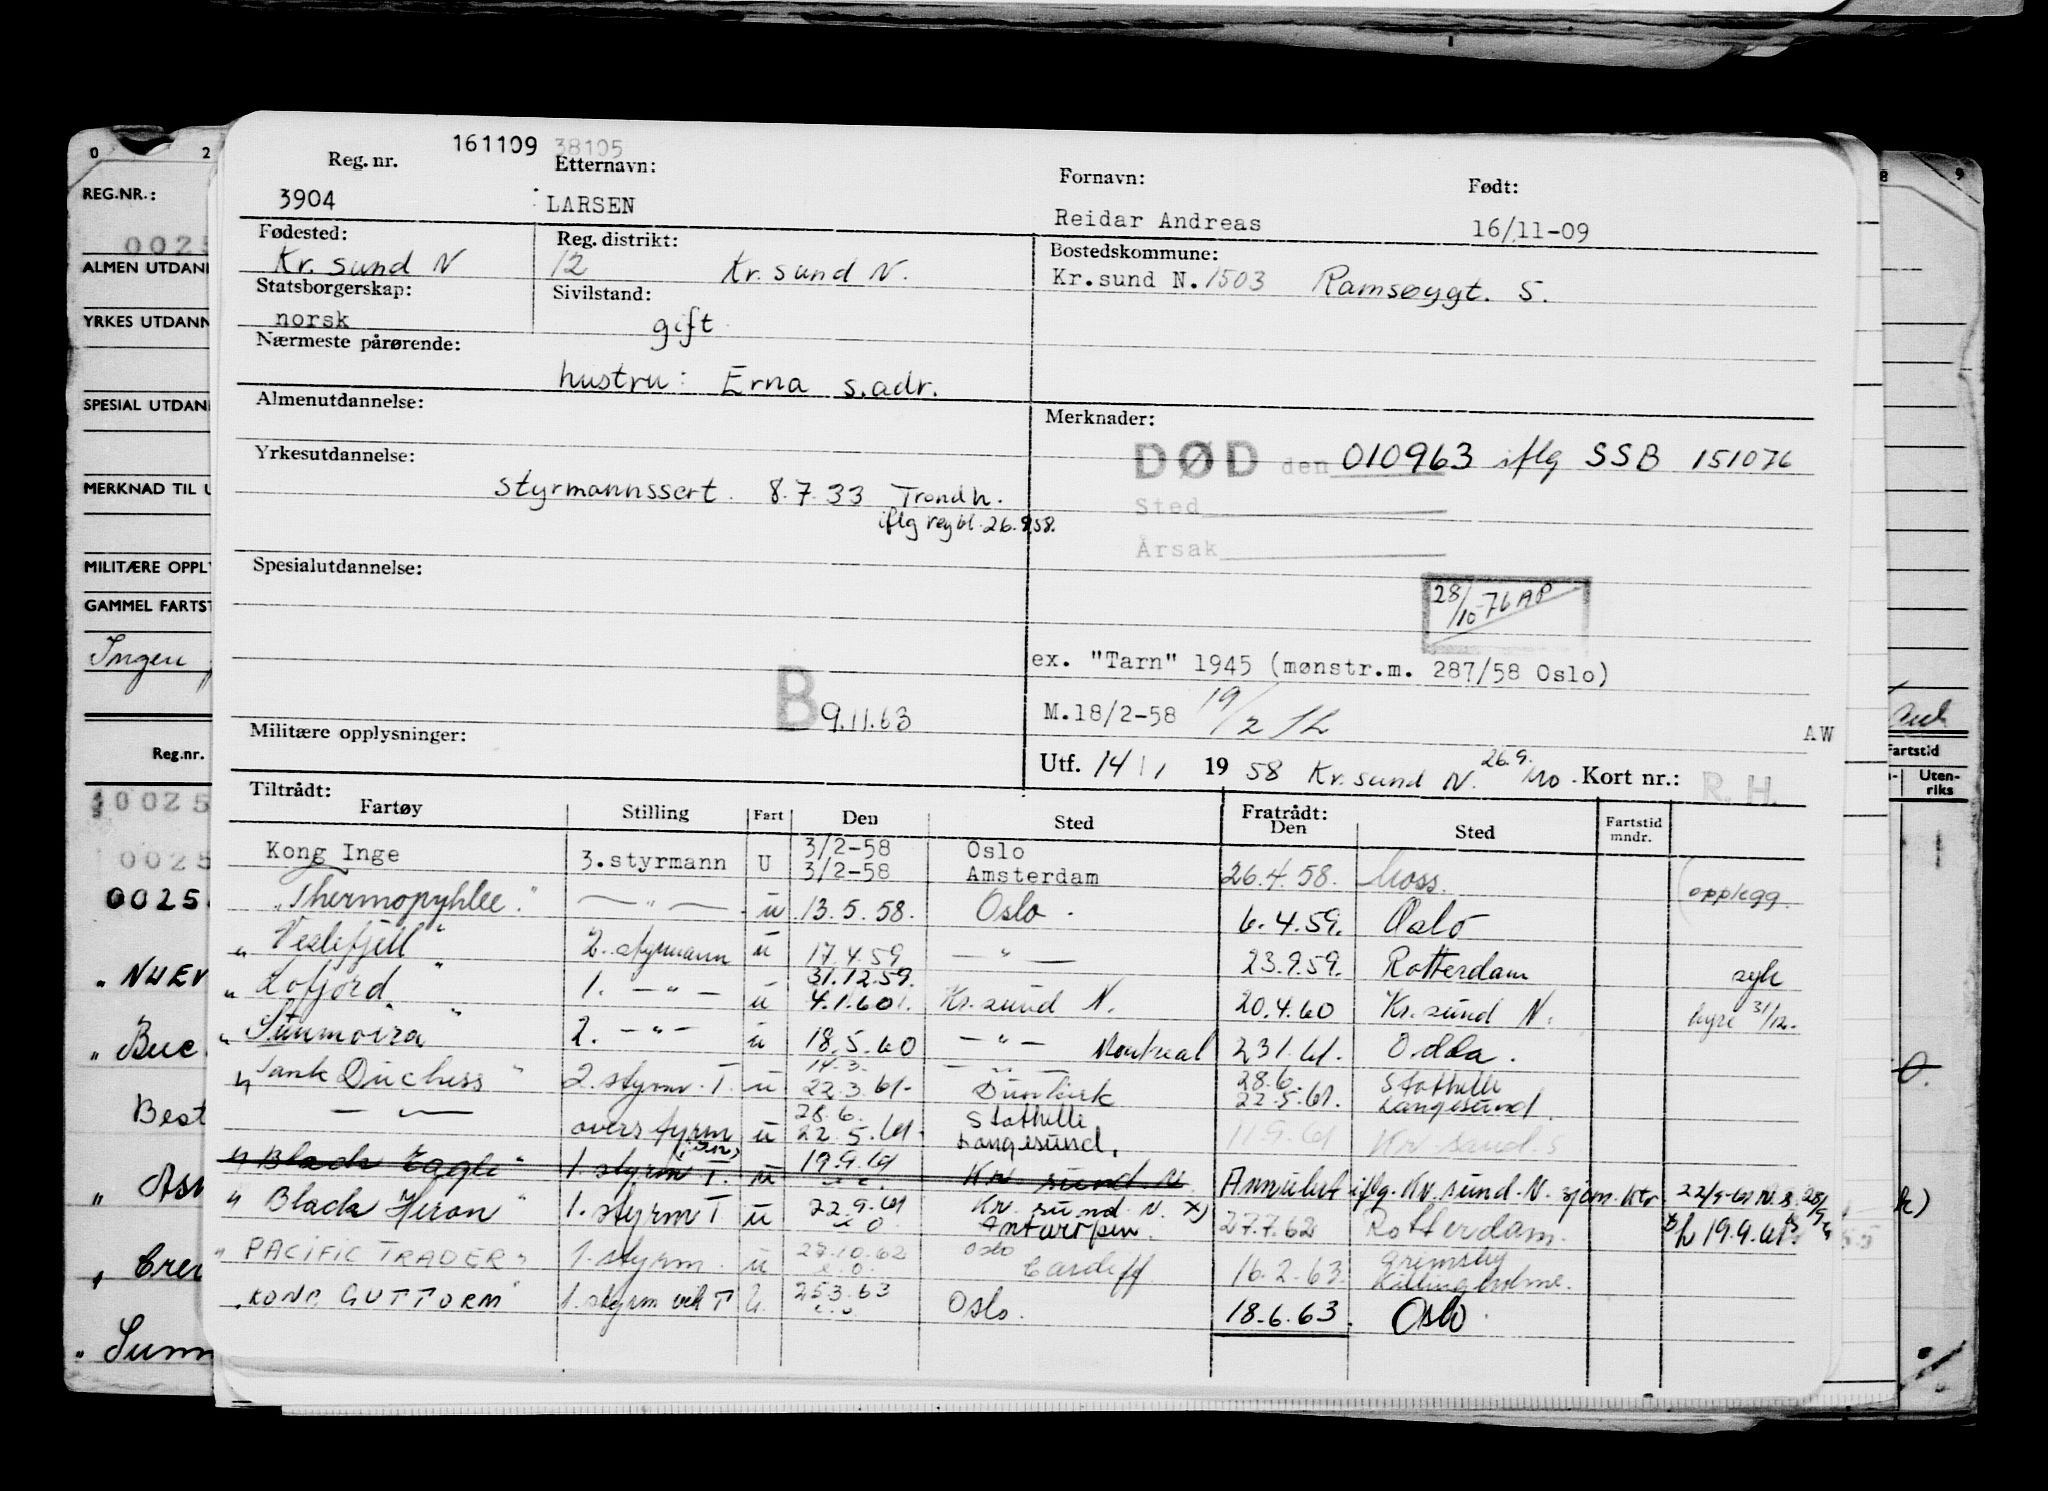 161109 38105
Reg. nr. Etternavn: Fornavn: Født:
3904 LARSEN Reidar Andreas 16/11-09
Fødested: Reg. distrikt: Bostedskommune:
Kr. sund N 12 Kr. sund N. Kr.sund N. 1503 Ramsøygt. 5.
Statsborgerskap: Sivilstand:
norsk gift
Nærmeste pårørende:
hustru: Erna s.adr.
Almenutdannelse: Merknader:
DØD den 010963 iflg SSB 151076
Yrkesutdannelse:
styrmannssert. 8.7.33 Trondh.
iflg regbl. 26.9.58.
Sted
Årsak
Spesialutdannelse:
28/10-76 AP
ex. "Tarn" 1945 (mønstr.m. 287/58 Oslo)
B 9.11.63
M.18/2-58 19/2
AW
Militære opplysninger:
Utf. 14/1 1958 Kr. sund N. 26.9. Kort nr.: R. H.
Tiltrådt:
Fartøy Stilling Fart Den Sted Fratrådt: Den Sted Fartstid mndr.
Kong Inge 3.styrmann U 3/2-58 Oslo
3/2-58 Amsterdam 26.4.58. Moss. opplegg.
"Thermopyhlee" — " — u 13.5.58. Oslo. 6.4.59. Oslo
"Veslefjell" 2. styrmann u 17.4.59 — " — 23.9.59. Rotterdam syk
"Lofjord" 1. — " — u 31.12.59. 4.1.60. Kr. sund N. 20.4.60 Kr. sund N. hyre 31/12.
"Sunmoira" 2. — " — u 18.5.60 — " — Montreal 23.1.61. Odda.
"Tank Duchess" 2. styrm. T. u 14.3. 22.3.61 — " — Dunkirk 28.6. 22.5.61. Stathelle Langesund.
— " — overstyrm u 28.6. 22.5.61. Stathelle Langesund. 11.9.61 Kr sund. S
"Black Eagle" 1. styrm T. u 19.9.61 Kr sund N. Annulert iflg. Kr. sund. N. sjøm. ktr. 22/9-61 N.S. 28/9
"Black Heron" 1. styrm T u 22.9.61 Kr. sund N. x) Antwerpen. 27.7.62 Rotterdam. 19.9.61
"PACIFIC TRADER" 1. styrm. u 27.10.62 Oslo Cardiff 16.2.63. Grimsby Killingholme.
"KONG GUTTORM" 1. styrm vik T U. 25.3.63 Oslo. 18.6.63. Oslo.
0 2
REG.NR.:
0025
ALMEN UTDANN
YRKES UTDANN
SPESIAL UTDAN
MERKNAD TIL U
MILITÆRE OPPL
GAMMEL FARTST
Ingen
Reg.nr.
0025
0025
0025
"NUEV
"Bue
Best
"Asn
"Crei
"Sunn
8 9
Fartstid
Uten-
riks